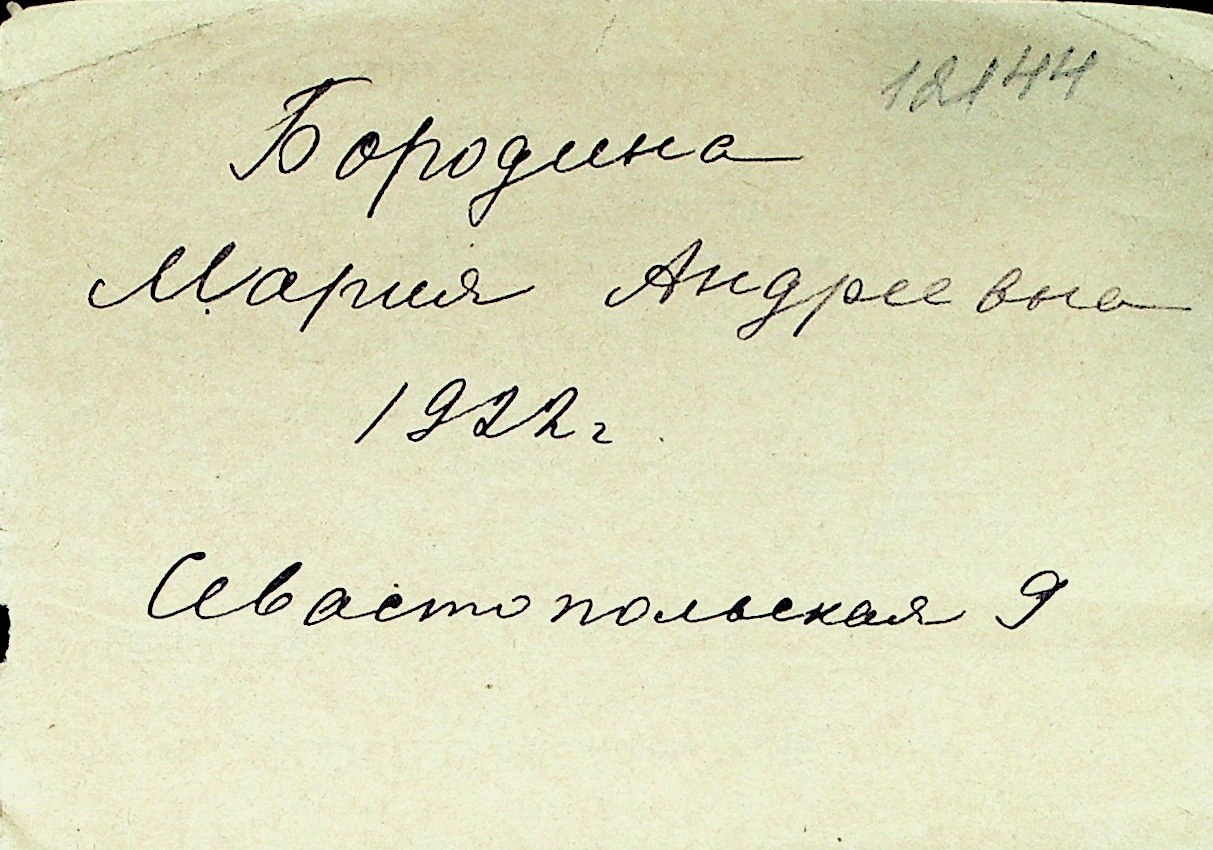 12144
Бородина
Мария Андреевна
1922г
Севастопольская 9